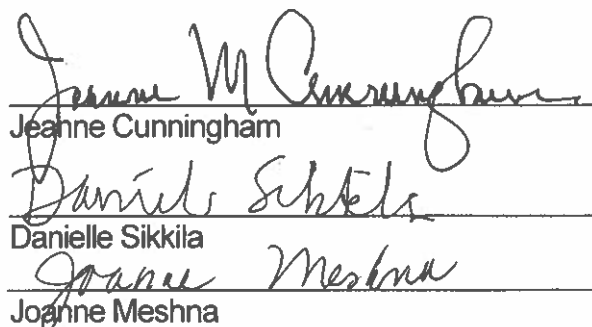 Jeanne M Cunningham
Jeanne Cunningham
Danielle Sikkila
Danielle Sikkila
Joanne Meshna
Joanne Meshna